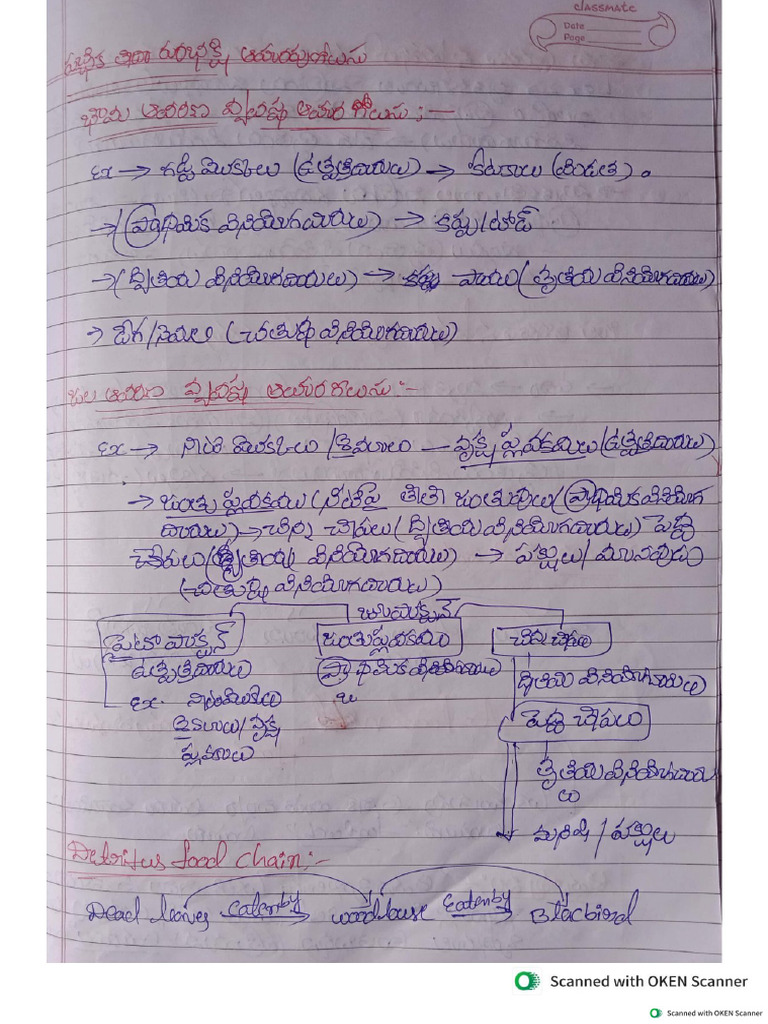 classmate
Date
Page
ఆహారపుగొలుసు
ఆవరణ వ్యవస్థ ఆహార గొలుసు :-
Ex → గడ్డి మొక్కలు (ఉత్పత్తిదారులు) → కీటకాలు (మిడత).
→ (ప్రాథమిక వినియోగదారులు) → కప్ప/టోడ్
→ (ద్వితీయ వినియోగదారులు) → పాము (తృతీయ వినియోగదారులు)
→ డేగ/నెమలి (చతుర్థ వినియోగదారులు)
జల ఆవరణ వ్యవస్థ ఆహార గొలుసు :-
Ex → నీటి మొక్కలు / శైవలాలు — వృక్ష ప్లవకములు (ఉత్పత్తిదారులు)
→ జంతు ప్లవకములు (నీటిపై తేలే జంతువులు (ప్రాథమిక వినియోగ
దారులు) → చిన్న చేపలు (ద్వితీయ వినియోగదారులు) పెద్ద
చేపలు (తృతీయ వినియోగదారులు) → పక్షులు/మానవుడు
(చతుర్థ వినియోగదారులు)
జంతుప్లవకము
చిన్న చేపలు
ఉత్పత్తిదారులు
ప్రాథమిక వినియోగదారులు
ద్వితీయ వినియోగదారులు
Ex. నీటిమొక్కలు
పెద్ద చేపలు
/వృక్ష
తృతీయ వినియోగదారు
లు
మనిషి / పక్షులు
Detritus food chain :-
Dead leaves eatenby → woodlouse Eatenby → Blackbird
Scanned with OKEN Scanner
Scanned with OKEN Scanner